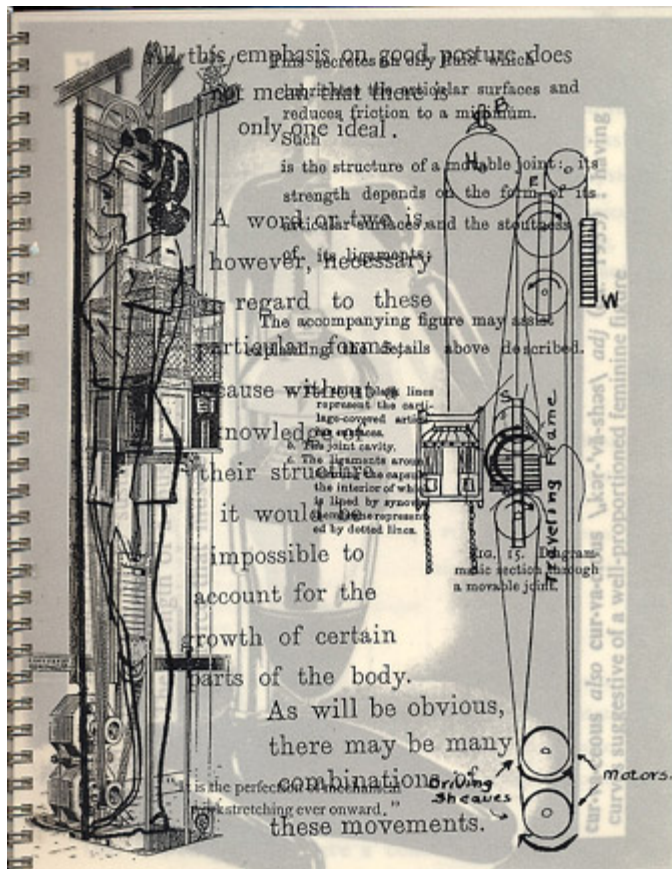 All this emphasis on good posture does
not mean that there is
only one ideal.
A word or two is,
however, necessary
in regard to these
particular forms,
because without a
knowledge of
their structure
it would be
impossible to
account for the
growth of certain
parts of the body.
As will be obvious,
there may be many
combinations of
these movements.
This secretes an oily fluid which
lubricates the articular surfaces and
reduces friction to a minimum.
Such
is the structure of a movable joint: its
strength depends on the form of its
articular surfaces and the stoutness
of its ligaments.
The accompanying figure may assist
explaining the details above described.
lines
represent the carti-
lage-covered artic
surfaces.
b. The joint cavity.
c. The ligaments around
the capsule
the interior of which
is lined by synov
represent
ed by dotted lines.
FIG. 15. Diagram-
matic section through
a movable joint.
"It is the perfection of mechanical
stretching ever onward."
B
H
F
W
S
Traveling Frame
Driving
Sheaves
Motors
also cur·va·cious \kər-ˈvā-shəs\ adj
having
suggestive of a well-proportioned feminine figure